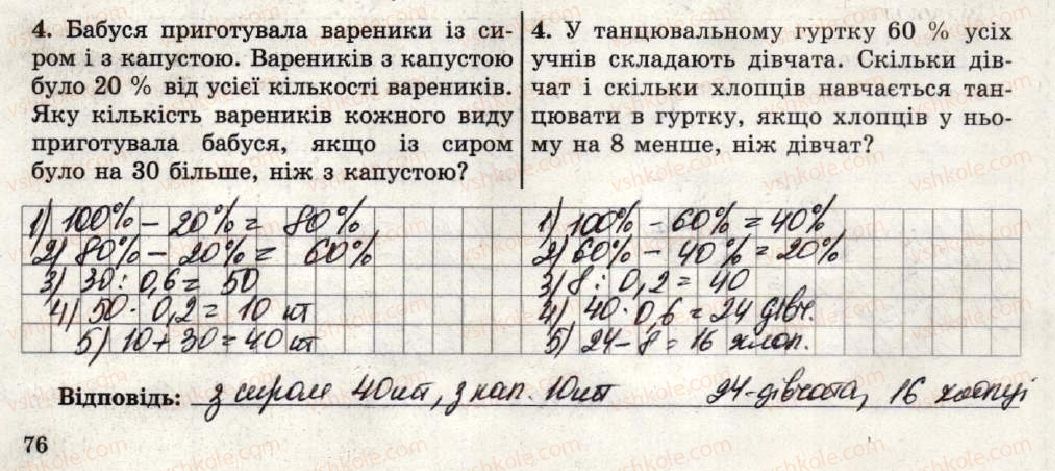 4. Бабуся приготувала вареники із си-
ром і з капустою. Вареників з капустою
було 20 % від усієї кількості вареників.
Яку кількість вареників кожного виду
приготувала бабуся, якщо із сиром
було на 30 більше, ніж з капустою?
4. У танцювальному гуртку 60 % усіх
учнів складають дівчата. Скільки дів-
чат і скільки хлопців навчається тан-
цювати в гуртку, якщо хлопців у ньо-
му на 8 менше, ніж дівчат?
1) 100% - 20% = 80%
2) 80% - 20% = 60%
3) 30 : 0,6 = 50
4) 50 · 0,2 = 10 шт
5) 10 + 30 = 40 шт
1) 100% - 60% = 40%
2) 60% - 40% = 20%
3) 8 : 0,2 = 40
4) 40 · 0,6 = 24 дівч.
5) 24 - 8 = 16 хлоп.
Відповідь: з сиром 40шт, з кап. 10шт
24-дівчата, 16 хлопці
76
vshkole.com